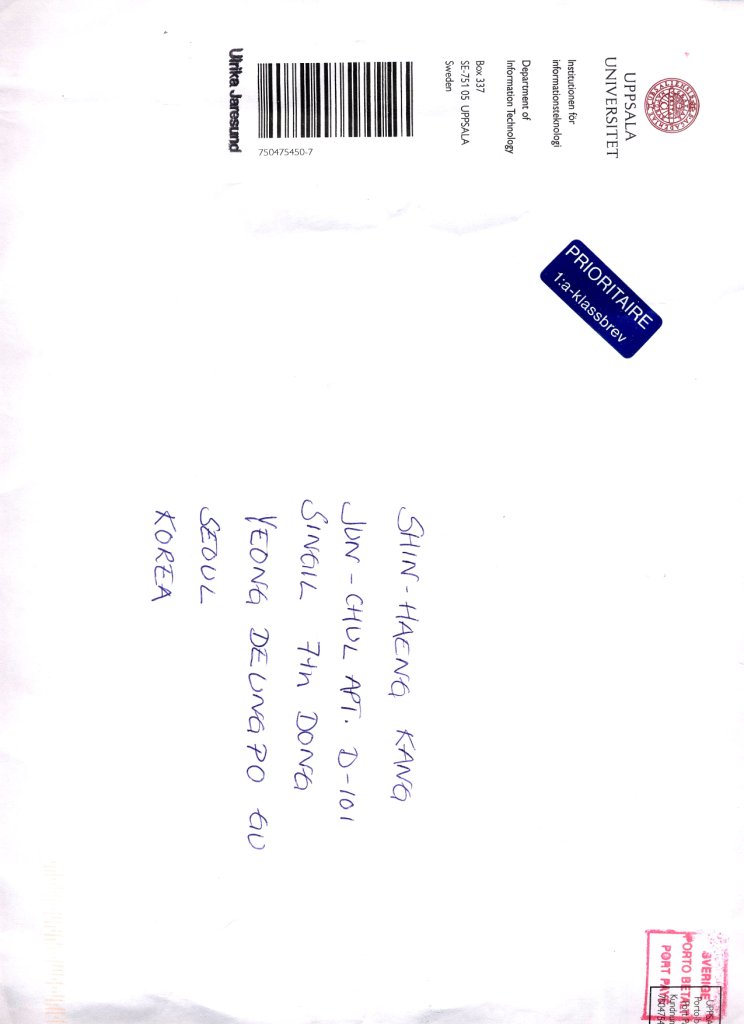 UPPSALA
UNIVERSITET
Institutionen för
informationsteknologi
Department of
Information Technology
Box 337
SE-751 05 UPPSALA
Sweden
750475450-7
Ulrika Jaresund
PRIORITAIRE
1:a-klassbrev
SVERIGE
PORTO BETALT
PORT PAYÉ
SHIN-HAENG KANG
JUN-CHUL APT. D-101
SINGIL 7th DONG
YEONG DEUNGPO GU
SEOUL
KOREA